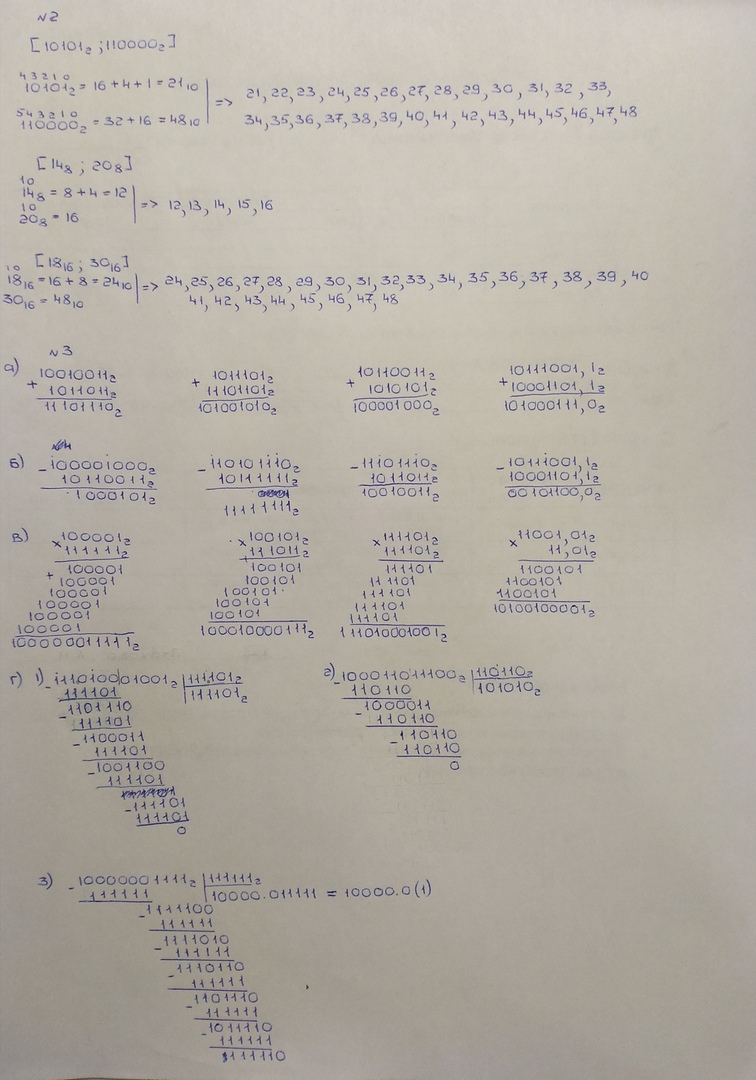 №2
[10101₂ ; 110000₂]
4 3 2 1 0
10101₂ = 16 + 4 + 1 = 21₁₀
5 4 3 2 1 0
110000₂ = 32 + 16 = 48₁₀
=> 21, 22, 23, 24, 25, 26, 27, 28, 29, 30, 31, 32, 33,
34, 35, 36, 37, 38, 39, 40, 41, 42, 43, 44, 45, 46, 47, 48
[14₈ ; 20₈]
10
14₈ = 8 + 4 = 12
10
20₈ = 16
=> 12, 13, 14, 15, 16
[18₁₆ ; 30₁₆]
10
18₁₆ = 16 + 8 = 24₁₀
30₁₆ = 48₁₀
=> 24, 25, 26, 27, 28, 29, 30, 31, 32, 33, 34, 35, 36, 37, 38, 39, 40
41, 42, 43, 44, 45, 46, 47, 48
№3
а) 10010011₂ 1011101₂ 10110011₂ 10111001,1₂
+ 1011011₂ + 11101101₂ + 1010101₂ + 10001101,1₂
11101110₂ 101001010₂ 100001000₂ 101000111,0₂
б) - 100001000₂ - 110101110₂ - 11101110₂ - 10111001,1₂
10110011₂ 10111111₂ 1011011₂ 10001101,1₂
1000101₂ 11111111₂ 10010011₂ 00101100,0₂
в) × 100001₂ × 100101₂ × 111101₂ × 11001,01₂
111111₂ 111011₂ 111101₂ 11,01₂
100001 100101 111101 1100101
+ 100001 100101 111101 1100101
100001 100101 111101 1100101
100001 100101 111101 1010010001₂
100001 100101 111101
100001 100010000111₂ 111010001001₂
100000011111₂
г) 1) - 111010001001₂ 111101₂
111101 111101₂
- 1101110
111101
- 1100011
111101
- 1001100
111101
- 111101
111101
0
2) - 100011011100₂ 110110₂
110110 101010₂
- 1000011
110110
- 110110
110110
0
3) - 10000001111₂ 111111₂
111111 10000.011111 = 10000.0(1)
- 1111100
111111
- 1111010
111111
- 1110110
111111
- 1101110
111111
- 1011110
111111
111110